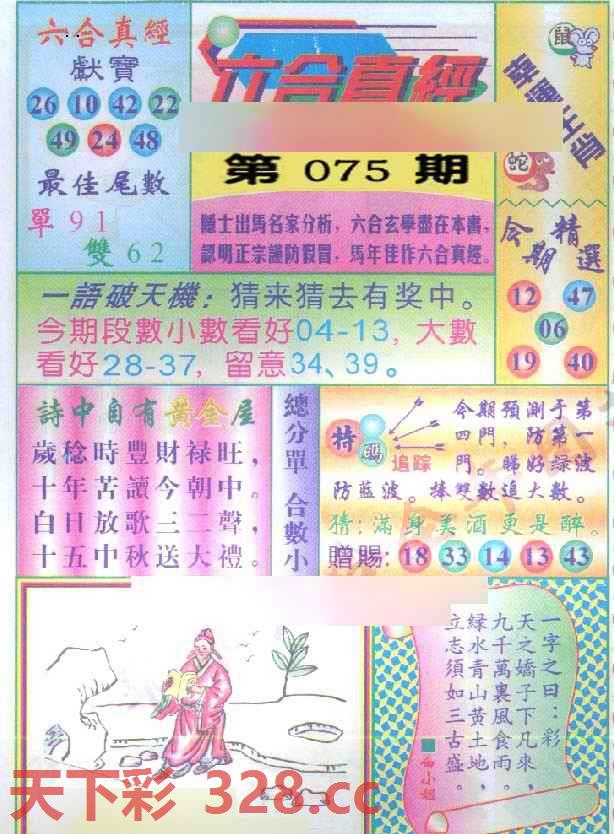 六合真經
獻寶
26 10 42 22
49 24 48
最佳尾數
單 9 1
雙 6 2
六合真經
第 075 期
隱士出馬名家分析，六合玄學盡在本書，
認明正宗謹防假冒，馬年佳作六合真經。
鼠
蛇
今期精選
12 47
06
19 40
一語破天機：猜来猜去有奖中。
今期段數小數看好04-13，大數
看好28-37，留意34、39。
詩中自有黄金屋
歲稔時豐財禄旺，
十年苦讀今朝中。
白日放歌三二聲，
十五中秋送大禮。
總分單 合數小
特碼
追踪
今期預測于第
四門，防第一
門。睇好绿波
防蓝波。捧雙數追大數。
猜：滿身美酒更是醉。
贈賜：18 33 14 13 43
一字之曰：彩
天之嬌子下凡來，
九千萬裏風食雨，
緑水青山黄土地，
立志須如三古盛。
白小姐
天下彩 328.cc